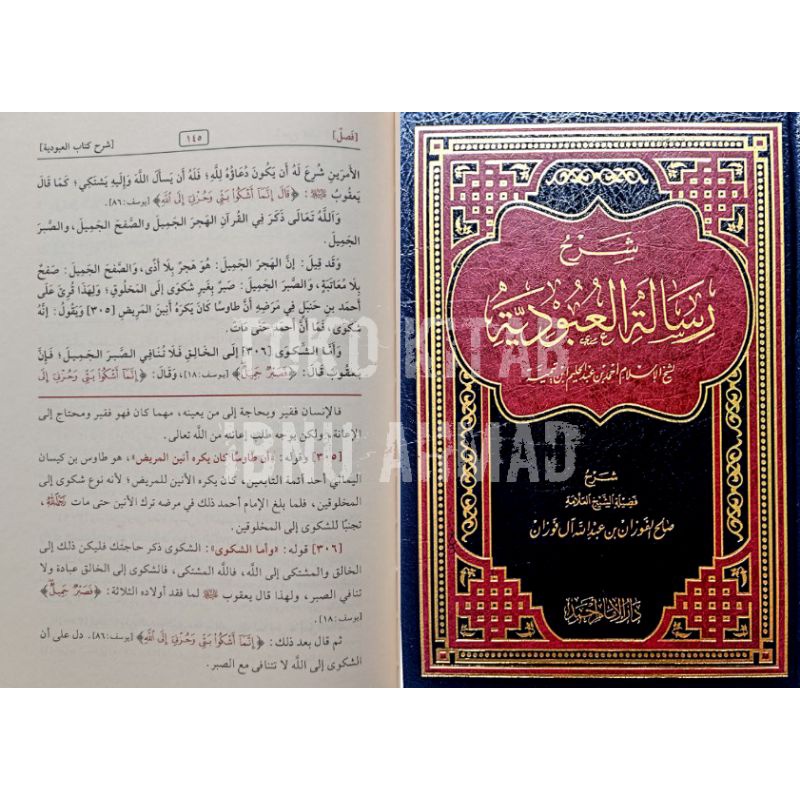 [فَصلٌ]
١٤٥
[شرح كتاب العبودية]
الأَمرَينِ شُرِعَ لَهُ أَن يَكُونَ دُعَاؤُهُ لِلَّهِ؛ فَلَهُ أَن يَسأَلَ اللَّهَ وَإِلَيهِ يَشتَكِي؛ كَمَا قَالَ
يَعقُوبُ ﷺ: ﴿قَالَ إِنَّمَآ أَشۡكُواْ بَثِّي وَحُزۡنِيٓ إِلَى ٱللَّهِ﴾ [يوسف: ٨٦].
وَاللَّهُ تَعَالَى ذَكَرَ فِي القُرآنِ الهَجرَ الجَمِيلَ وَالصَّفحَ الجَمِيلَ، وَالصَّبرَ
الجَمِيلَ.
وَقَد قِيلَ: إِنَّ الهَجرَ الجَمِيلَ: هُوَ هَجرٌ بِلَا أَذًى، وَالصَّفحَ الجَمِيلَ: صَفحٌ
بِلَا مُعَاتَبَةٍ، وَالصَّبرَ الجَمِيلَ: صَبرٌ بِغَيرِ شَكوَى إِلَى المَخلُوقِ؛ وَلِهَذَا قُرِئَ عَلَى
أَحمَدَ بنِ حَنبَلٍ فِي مَرَضِهِ أَنَّ طَاوسًا كَانَ يَكرَهُ أَنِينَ المَرِيضِ [٣٠٥] وَيَقُولُ: إِنَّهُ
شَكوَى، فَمَا أَنَّ أَحمَدُ حَتَّى مَاتَ.
وَأَمَّا الشَّكوَى [٣٠٦] إِلَى الخَالِقِ فَلَا تُنَافِي الصَّبرَ الجَمِيلَ؛ فَإِنَّ
يَعقُوبَ قَالَ: ﴿فَصَبۡرٞ جَمِيلٌ﴾ [يوسف: ١٨]، وَقَالَ: ﴿إِنَّمَآ أَشۡكُواْ بَثِّي وَحُزۡنِيٓ إِلَى
فالإنسان فقير وبحاجة إلى من يعينه، مهما كان فهو فقير ومحتاج إلى
الإعانة، ولكن يوجه طلب إعانته من اللَّه تعالى.
[٣٠٥] وقوله: «أن طاوسًا كان يكره أنين المريض»، هو طاوس بن كيسان
اليماني أحد أئمة التابعين، كان يكره الأنين للمريض؛ لأنه نوع شكوى إلى
المخلوقين، فلما بلغ الإمام أحمد ذلك في مرضه ترك الأنين حتى مات رَحِمَهُ اللَّهُ
تجنبًا للشكوى إلى المخلوقين.
[٣٠٦] قوله: «وأما الشكوى»: الشكوى ذكر حاجتك فليكن ذلك إلى
الخالق والمشتكى إلى اللَّه، فاللَّه المشتكى، فالشكوى إلى الخالق عبادة ولا
تنافي الصبر، ولهذا قال يعقوب ﷺ لما فقد أولاده الثلاثة: ﴿فَصَبۡرٞ جَمِيلٌ﴾
[يوسف: ١٨].
ثم قال بعد ذلك: ﴿إِنَّمَآ أَشۡكُواْ بَثِّي وَحُزۡنِيٓ إِلَى ٱللَّهِ﴾ [يوسف: ٨٦]. دل على أن
الشكوى إلى اللَّه لا تتنافى مع الصبر.
شرح
رسالة العبودية
لشيخ الإسلام أحمد بن عبد الحليم ابن تيمية
شرح
فضيلة الشيخ العلامة
صالح الفوزان بن عبد الله آل فوزان
دار الإمام أحمد
TOKO KITAB
IBNU AHMAD